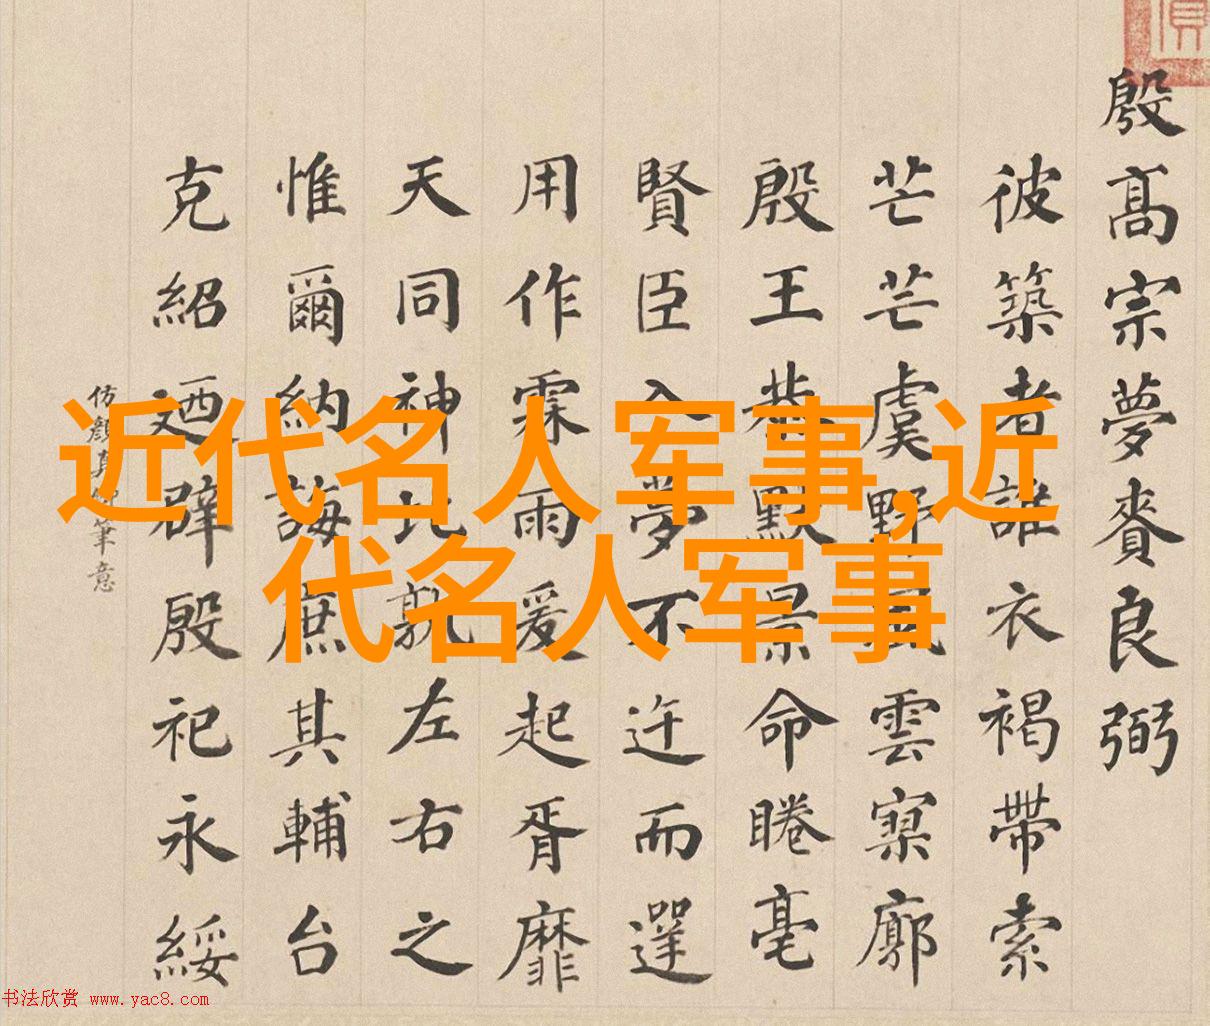 殷髙宗夢賚良弼
彼築者誰衣褐帶索
芒芒虞野風雲寥廓
殷王恭默景命睠亳
賢臣入夢不迕而遻
用作霖雨爰起胥靡
天同神比孰左右之
惟爾納誨庶其輔台
克紹廼辟殷祀永綏
仿顏真卿筆意
近代名人军事,近
代名人军事
书法欣赏 www.yac8.com